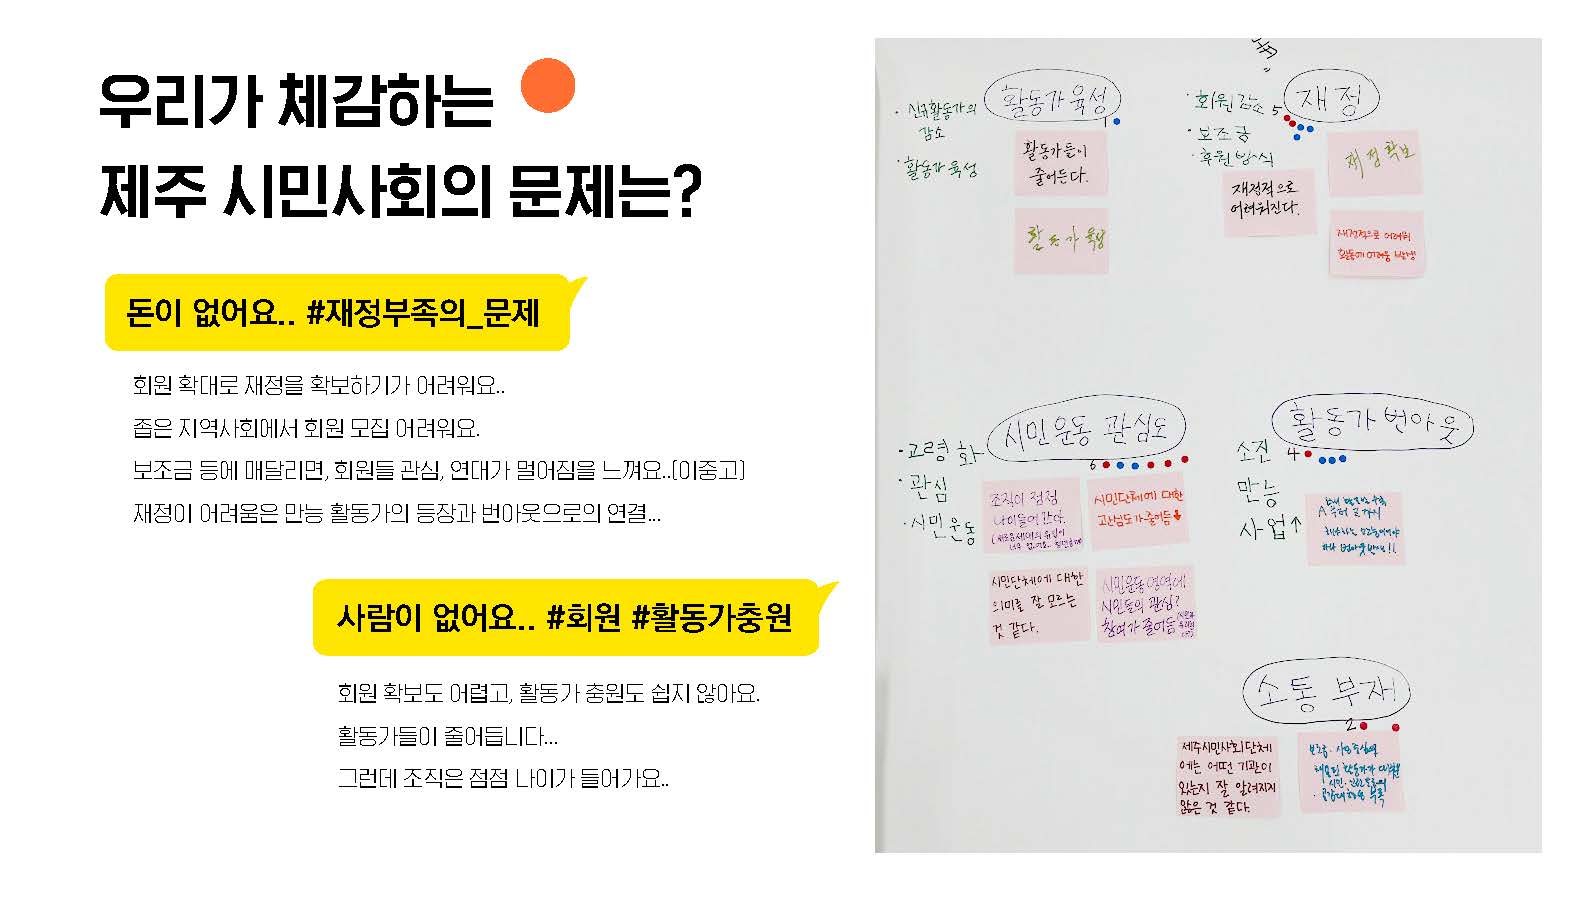 우리가 체감하는
제주 시민사회의 문제는?
돈이 없어요.. #재정부족의_문제
회원 확대로 재정을 확보하기가 어려워요..
좁은 지역사회에서 회원 모집 어려워요.
보조금 등에 매달리면, 회원들 관심, 연대가 멀어짐을 느껴요..(이중고)
재정이 어려움은 만능 활동가의 등장과 번아웃으로의 연결...
사람이 없어요.. #회원 #활동가충원
회원 확보도 어렵고, 활동가 충원도 쉽지 않아요.
활동가들이 줄어듭니다...
그런데 조직은 점점 나이가 들어가요..
활동가 육성
1
· 신규활동가의
감소
· 활동가 육성
활동가들이
줄어든다.
활동가 육성
재정
· 회원감소 5
· 보조금
· 후원방식
재정확보
재정적으로
어려워진다.
재정적으로 어려워
활동에 어려움 발생
시민운동 관심도
6
· 고령화
· 관심
· 시민운동
조직이 점점
나이들어 간다.
시민단체에 대한
관심도가 줄어듬 ↓
시민단체에 대한
의미를 잘 모르는
것 같다.
시민운동 영역에
시민들의 관심?
참여가 줄어듬
활동가 번아웃
소진 4
만능
사업↑
A부터 Z까지
번아웃
소통 부재
2
제주시민사회단체
에는 어떤 기관이
있는지 잘 알려지지
않은 것 같다.
활동가가
공감대 형성 부족